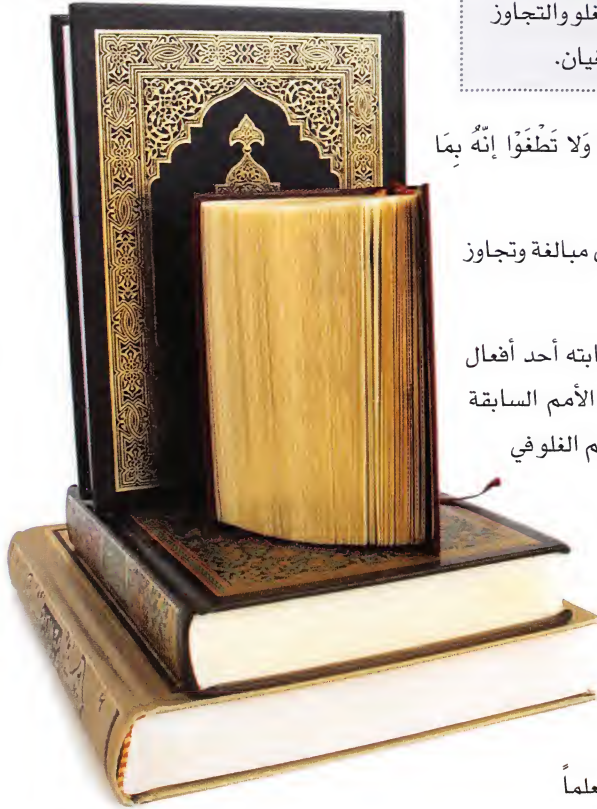 غلو والتجاوز
فيان.
وَلا تَطْغَوْا إنّهُ بِمَا
مبالغة وتجاوز
ابته أحد أفعال
الأمم السابقة
م الغلو في
علماً